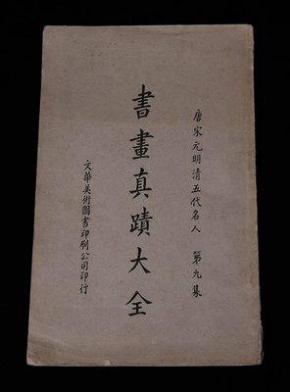 唐宋元明清五代名人 第九集
書畫真蹟大全
文華美術圖書印刷公司印行